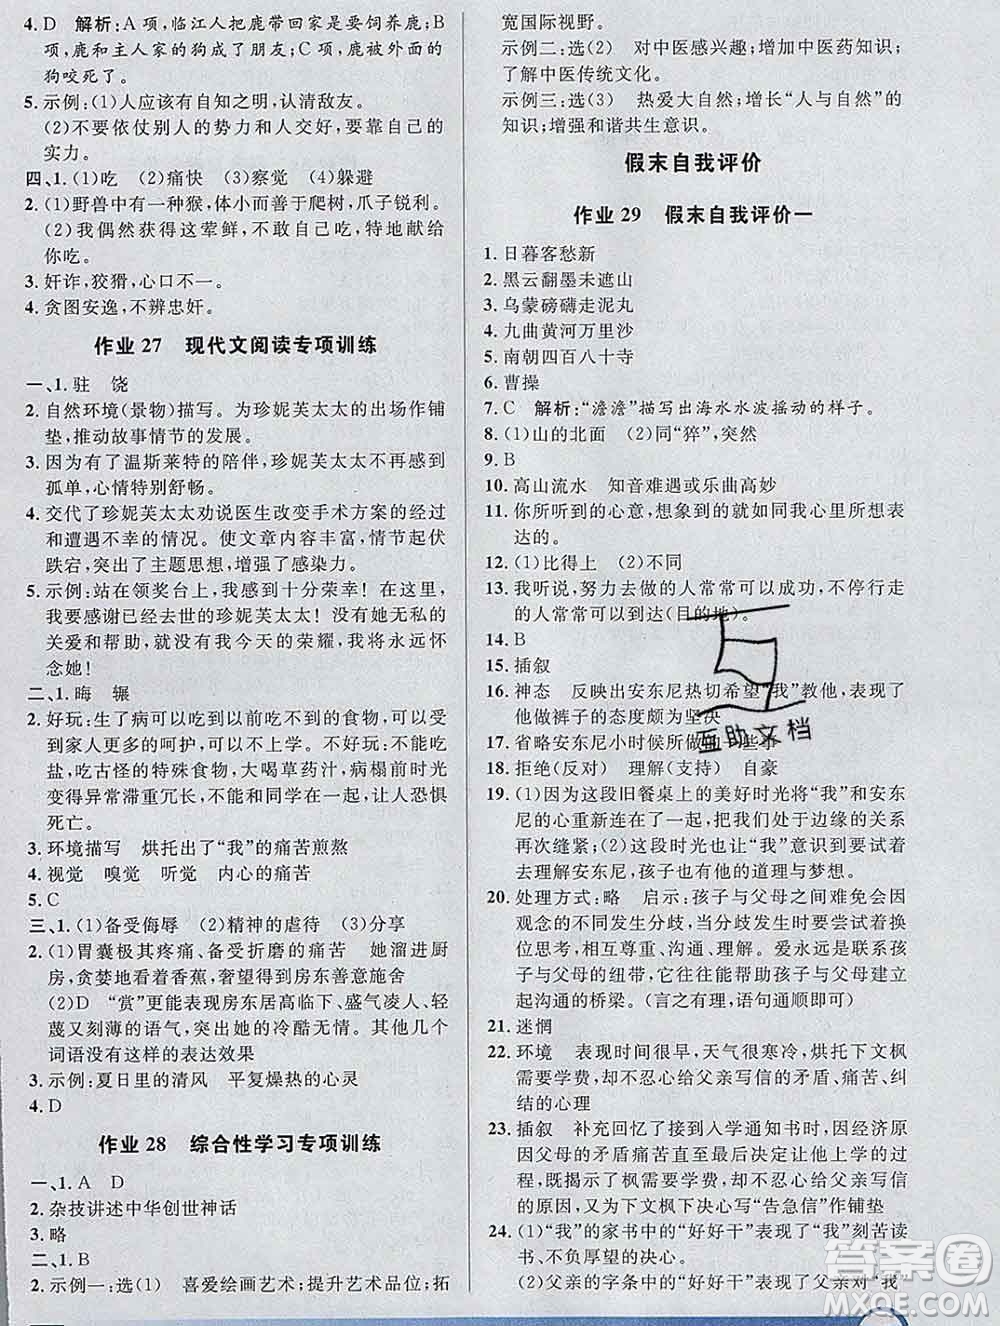 4. D　解析:A 项,临江人把鹿带回家是要饲养鹿;B
项,鹿和主人家的狗成了朋友;C 项,鹿被外面的
狗咬死了。
5. 示例:(1)人应该有自知之明,认清敌友。
(2)不要依仗别人的势力和人交好,要靠自己的
实力。
四、1. (1)吃　(2)痛快　(3)察觉　(4)躲避
2. (1)野兽中有一种猴,体小而善于爬树,爪子锐利。
(2)我偶然得到这荤鲜,不敢自己吃,特地献给
你吃。
3. 奸诈,狡猾,心口不一。
4. 贪图安逸,不辨忠奸。
作业 27　现代文阅读专项训练
一、1. 驻　饶
2. 自然环境(景物)描写。为珍妮芙太太的出场作铺
垫,推动故事情节的发展。
3. 因为有了温斯莱特的陪伴,珍妮芙太太不再感到
孤单,心情特别舒畅。
4. 交代了珍妮芙太太劝说医生改变手术方案的经过
和遭遇不幸的情况。使文章内容丰富,情节起伏
跌宕,突出了主题思想,增强了感染力。
5. 示例:站在领奖台上,我感到十分荣幸!在这里,
我要感谢已经去世的珍妮芙太太!没有她无私的
关爱和帮助,就没有我今天的荣耀,我将永远怀
念她!
二、1. 晦　辗
2. 好玩:生了病可以吃到以前吃不到的食物,可以得
到家人更多的呵护,可以不去上学。不好玩:不能
动弹,吃古怪的特殊食物,大喝草药汁,时间
变得异常滞重冗长,不能和同学在一起,甚至面临
死亡。
3. 环境描写　烘托出了“我”的痛苦煎熬
4. 视觉　嗅觉　听觉　内心的痛苦
5. C
三、1. (1)备受侮辱　(2)精神的虐待　(3)分享
2. (1)胃囊极其疼痛、备受折磨的痛苦　她溜进厨
房,贪婪地看着香蕉,奢望得到房东善意施舍
(2)D　“赏”更能表现房东居高临下、盛气凌人、轻
蔑又刻薄的语气,突出她的冷酷无情。其他几个
词语没有这样的表达效果
3. 示例:夏日里的清风　平复燥热的心灵
4. D
作业 28　综合性学习专项训练
一、1. A　D
2. 杂技讲述中华创世神话
3. 略
二、1. B
2. 示例一:选(1)　喜爱绘画艺术;提升艺术品位;拓
宽国际视野。
示例二:选(2)　对中医感兴趣;增加中医药知识;
了解中医传统文化。
示例三:选(3)　热爱大自然;增长“人与自然”的
知识;增强和谐共生意识。
假末自我评价
作业 29　假末自我评价一
1. 日暮客愁新
2. 黑云翻墨未遮山
3. 乌蒙磅礴走泥丸
4. 九曲黄河万里沙
5. 南朝四百八十寺
6. 曹操
7. C　解析:“澹澹”描写出海水水波摇动的样子。
8. (1)山的北面　(2)同“猝”,突然
9. B
10. 高山流水　知音难遇或乐曲高妙
11. 你所听到的心意,想象到的就如同我心里所想表
达的。
12. (1)比得上　(2)不同
13. 我听说,努力去做的人常常可以成功,不停行走
的人常常可以到达(目的地)。
14. B
15. 插叙
16. 神态　反映出安东尼热切希望“我”教他,表现了
他做裤子的态度颇为坚决
17. 省略安东尼小时候所做的一些事
18. 拒绝(反对)　理解(支持)　自豪
19. (1)因为这段旧餐桌上的美好时光将“我”和安东
尼的心重新连在了一起,把我们处于边缘的关系
再次缝紧;(2)这段时光也让“我”意识到要学着
去理解安东尼,孩子也有他的道理与梦想。
20. 处理方式:略　启示:孩子与父母之间难免会因
观念的不同发生分歧,当分歧发生时应当学会换
位思考,相互尊重、沟通、理解。爱永远是联系孩
子与父母的纽带,它也能帮助孩子与父母建立
起沟通的桥梁。(言之有理,语句通顺即可)
21. 迷惘
22. 环境　表现时间很早,天气很寒冷,烘托下文枫
需要学费,却不忍心给父亲写信的矛盾、痛苦、纠
结的心理
23. 插叙　补充叙述了接到入学通知书时,因经济原
因父母的矛盾痛苦与最终决定让他上学的过
程,既揭示了枫需要学费,却不忍心给父亲写信
的原因,又为下文枫下决心写“告急信”作铺垫
24. (1)“我”的家书中的“好好干”表现了“我”刻苦读
书、不负厚望的决心。
(2)父亲的字条中的“好好干”表现了父亲对“我”
互助文档
答案圈
MXQE.COM